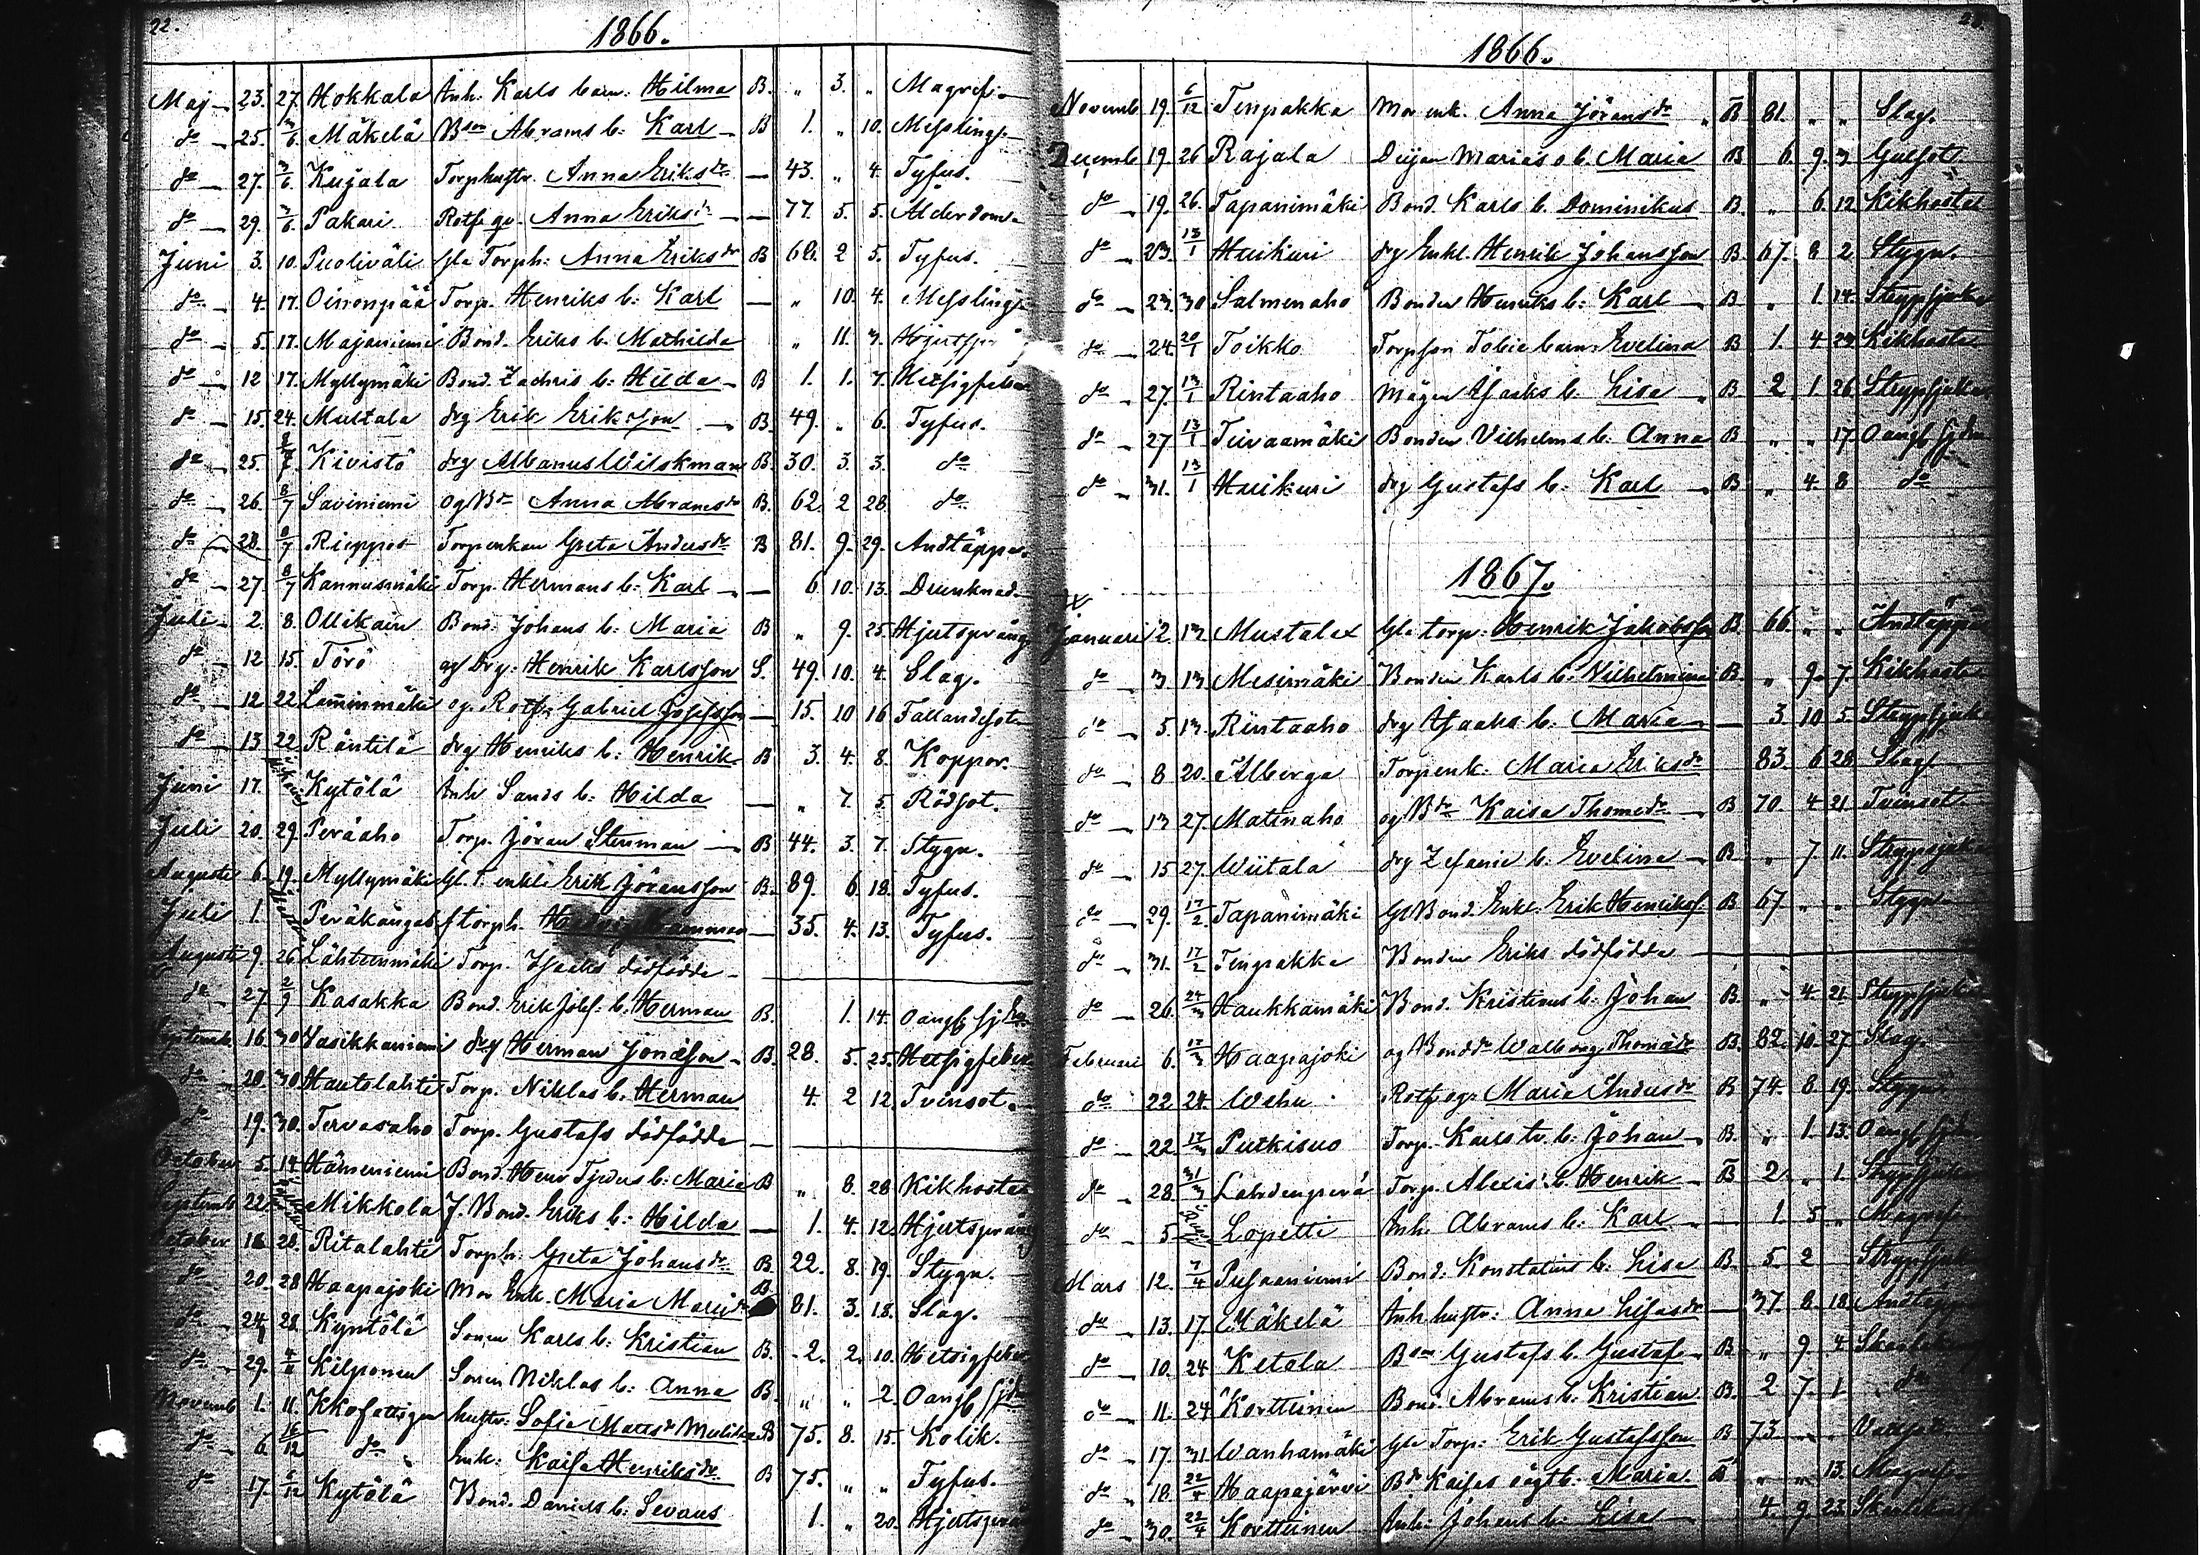 22.
1866.
Maj 23. 27. Hokkala Inh. Karls barn: Hilma B. " 3. " Magref.
do 25. 3/6 Mäkelä Bson Abrams b: Karl B 1. " 10. Messling.
do 27. 3/6 Kujala Torphustr. Anna Eriksdr — 43. " 4. Tyfus.
do 29. 3/6 Pakari Rotfgr. Anna Eriksdr — 77. 5. 5. Ålderdom.
Juni 3. 10. Puoliväli Gla Torph: Anna Eriksdr B 2 5. Tyfus.
do 4. 17. Oinonpää Torp. Henriks b: Karl — " 10. 4. Messling
do 5. 17. Majaniemi Bond. Eriks b. Mathilda " 11. 3.
do 12 17. Myllymäki Bond. Zachris b: Hilda B 1. 1. 7. Hetsigfeber
do 15. 24. Mustala drg Erik Eriksson B. 49. " 6. Tyfus.
do 25. 8/7 Kivistö drg Albanus Wilskman B. 30. 3. 3. do
do 26. 8/7 Saviniemi og Bdr Anna Abramsdr B. 62. 2 28. do
do 28. 8/7 Rieppo Torpenkan Greta Andersdr B 81. 9. 29. Andtäppa
do 27. 8/7 Kannusmäki Torp. Hermans b: Karl — 6 10. 13. Drunknad
Juli 2. 8. Ollikain Bond. Johans b: Maria B " 9. 25. Hjertsprång
do 12 15. Törö og Drg: Henrik Karlsson S. 49. 10. 4. Slag.
do 12 22 Lamminmäki og. Rotfr Gabriel Josefsson — 15. 10 16 Fallandesot
do 13 22. Räntilä drg Henriks b: Henrik B 3. 4. 8. Koppor.
Juni 17. Kytölä Inh Sands b: Hilda — " 7. 5. Rödsot.
Juli 20. 29. Peräaho Torp. Jöran Stenman B 44. 3. 7. Stygn.
Augusti 6. 19. Myllymäki Gl. T. enkli Erik Jöransson B. 89. 6. 18. Tyfus.
Juli 1. Peräkangas f torph. 35. 4. 13. Tyfus.
Augusti 9. 26 Lähteenmäki Torp. Isaaks dödfödde —
do 27. 2/9 Kasakka Bond. Erik Josef: b. Herman B. 1. 14. Oangf sjkd
Septemb. 16. 30 Vasikkaniemi drg Herman Jonasson B. 28. 5. 25. Hetsigfeber
do 20. 30. Hautolahti Torp. Niklas b. Herman 4. 2 12. Tvinsot.
do 19. 30. Tervasaho Torp. Gustafs dödfödde —
October 5. 14 Hämeniemi Bond. Henr b: Maria B " 8. 28 Kikhosta
Septemb 22. Mikkola J. Bond. Eriks b: Hilda — 1. 4. 12. Hjertsprång
October 16 28. Ritalahti Torph. Greta Johansdr B. 22. 8. 19. Stygn.
do 20. 28 Haapajoki Mor Enk. Maria B. 81. 3. 18. Slag.
do 24 28. Kyntölä Sonen Karls b: Kristian B. 2. 2. 10. Hetsigfeber
do 29. Kilponen Sonen Niklas b: Anna B. " " 2. Oangf sjkd
Novemb 1. 11. Kkofattigen hustr: Sofia Mattsdr B 75. 8. 15. Kolik.
do 6 16/12 do Enk: Kaisa Henriksdr B 75. " " Tyfus.
do 17. 6/12 Kytölä Bond. Daniels b: Sevaus 1. " 20. Hjertsprång
1866.
Novemb 19. 6/12 Tenpakka Mor enk. Anna Jöransdr B 81. " " Slag.
Decemb 19. 26 Rajala Deijan Marias o b. Maria B 6. 9. 3 Gulsot
do 19. 26. Tapanimäki Bond. Karls b. Dominikus B. " 6. 12 Kikhosta
do 23. 13/1 Huikuri drg Enkl. Henrik Johansson B. 67. 8 2 Stygn.
do 23. 30 Salmenaho Bonden Henriks b: Karl B " 1. 14. Strypsjuka
do 24. 20/1 Toikko Torpson Tobie barn: Evelina B 1. 4 Kikhosta
do 27. 13/1 Rintaaho Mågen Isaaks b. Lisa B 2 1. 26. Strypsjuka
do 27 13/1 Teivaamäki Bonden Vilhelms b: Anna B " " 17. Oangf sjkd
do 31. 13/1 Huikuri drg Gustafs b. Karl B " 4. 8 do
1867.
Januari 2. 13. Mustala Gla torp: Henrik Jakobsson B 66. " " Andtäppa
do 3. 13. Mesimäki Bonden Karls b: Vilhelmina B. " 9. 7. Kikhosta
do 5. 13. Rintaaho drg Isaaks b: Maria — 3 10 5. Strypsjuka
do 8 20. Alberga Torpenk: Maria Eriksdr 83. 6 28. Slag
do 13 27. Matinaho og Bdr Kaisa Thomasdr B 70. 4 21. Tvinsot
do 15 27. Wiitala drg Zefanie b. Evelina B " 7. 11. Strypsjuka
do 29. 17/2 Tapanimäki Gl Bond. Enkl. Erik Henrikss. B 67 " " Stygn
do 31. 17/2 Tenpakka Bonden Eriks dödfödda —
do 26. 24/3 Haukkamäki Bond. Kristians b: Johan B. " 4. 21. Strypsjuka
Februari 6. 17/3 Haapajoki og Bonddr Walborg Thomasdr B. 82. 10. 27 Slag.
do 22. 24. Wehu Rotfgr. Maria Andersdr B 74. 8. 19. Stygn
do 22 17/3 Putkisuo Torp. Karls b: Johan B. " 1. 13. Oangf sjkd
do 28. 31/3 Lahdenperä Torp. Alexis' b. Henrik B 2 " 1. Strypsjuka
do 5 Lopetti Inh. Abrams b: Karl — 1. 5 " Magref
Mars 12. 7/4 Pusaaniemi Bond. Konstatins b: Lisa B. 5. 2 Strypsjuka
do 13. 17. Mäkelä Inh hustr: Anna — 37. 8. 18 Andtäppa
do 10. 24 Ketola Bson Gustafs b. Gustaf B " 9 4.
do 11. 24 Kortteinen Bond. Abrams b: Kristian B. 2 7. 1. do
do 17. 31 Wanhamäki Gla Torp: Erik Gustafsson B 73 " "
do 18. 22/4 Haapajärvi Bdr Kaisas oägtb: Maria B " " 13. Magref
do 30. 22/4 Kortteinen Inh: Johans b: Lisa — 4. 9. 23.